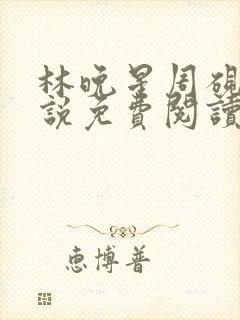 林晚星周硯
說免費閱讀
惠博普